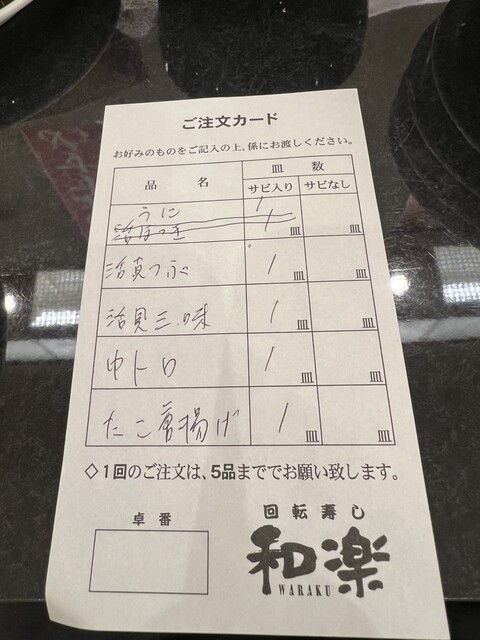 ご注文カード
お好みのものをご記入の上、係にお渡しください。
品名 皿数
サビ入り サビなし
うに 1
1 皿 皿
活真つぶ 1 皿 皿
活貝三味 1 皿 皿
中トロ 1 皿 皿
たこ唐揚げ 1 皿 皿
◇1回のご注文は、5品まででお願い致します。
卓番
回転寿し
和楽
WARAKU